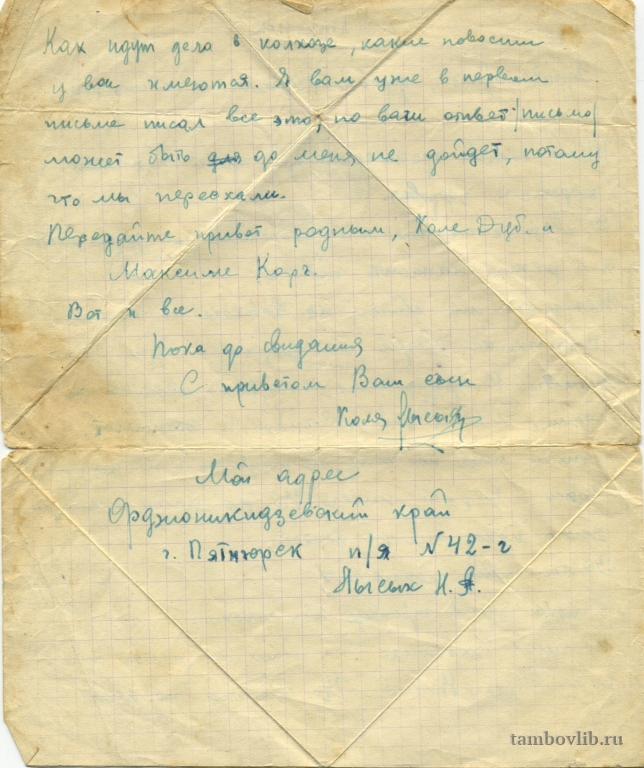 Как идут дела в колхозе, какие новости
у вас имеются. Я вам уже в первом
письме писал все это, но ваш ответ /письмо/
может быть до меня не дойдет, потому
что мы переехали.
Передайте привет родным, Коле Дуб. и
Максиме Кор.
Вот и все.
Пока до свидания
С приветом Ваш сын
Коля Лысых
Мой адрес
Орджоникидзевский край
г. Пятигорск п/я N 42-г
Лысых Н. Я.
tambovlib.ru